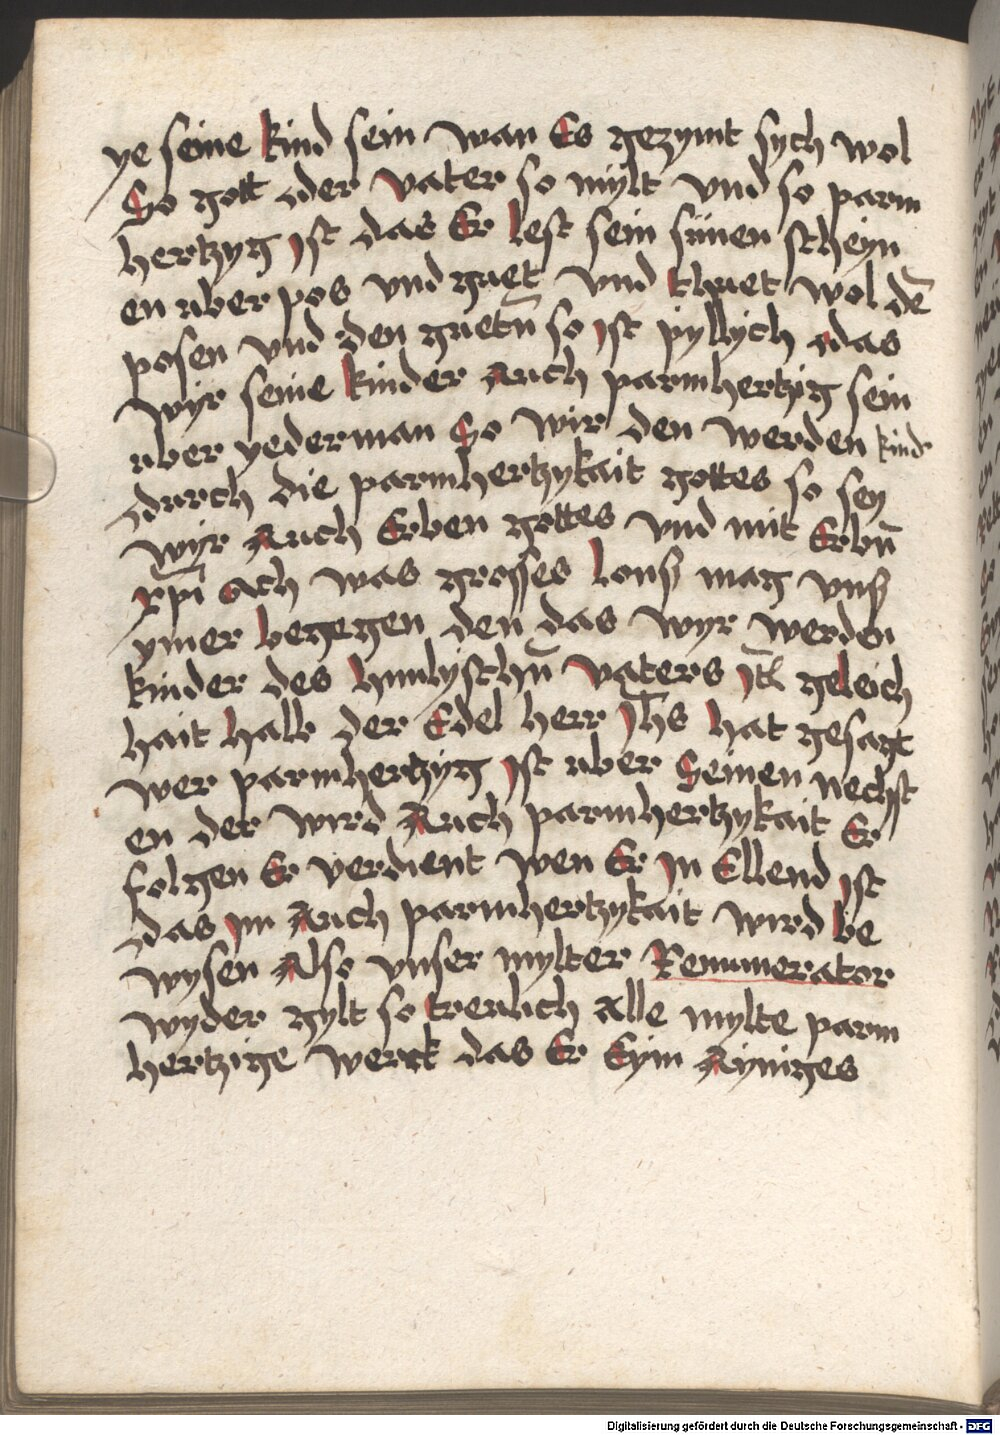 ye seine kind sein wan Es gezymt sych wol
So gott der vater so mylt vnd so parm
hertzyg ist das Er lest sein sünen scheyn
en vber pos vnd guet vnd thuet wol dē
posen vnd den guetn̄ so ist pyllych das
wyr seine kinder Auch parmhertzig sein
vber yederman So wir den werden kinder
durch die parmhertzykait gottes so sey
wyr Auch Erben gottes vnd mit Erbn̄
xp̄i Ach was grosses lons mag vns
ymer begegen den das wyr werden
kinder des himlyschn̄ vaters Jtl̄ geleich
hait halb der Edel herr Jh̄s hat gesagt
wer parmhertzyg ist vber Seinen nechst
en der wird Auch parmhertzykait Er
folgen Er verdient wen Er in Ellend ist
das im Auch parmhertzykait wird be
wysen Also vnser mylter Remunerator
wyder gylt so trewlich Alle mylte parm
hertzige werck das Er Eym Ayniges
Digitalisierung gefördert durch die Deutsche Forschungsgemeinschaft - DFG